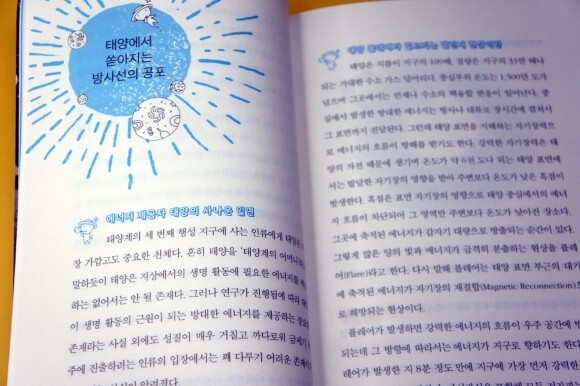 태양에서
쏟아지는
방사선의 공포
에너지 제공자 태양의 사나운 일면
태양계의 세 번째 행성 지구에 사는 인류에게 태양은
장 가깝고도 중요한 천체다. 흔히 태양을 '태양계의 어머니'
말하듯이 태양은 지상에서의 생명 활동에 필요한 에너지를
하는 없어서는 안 될 존재다. 그러나 연구가 진행됨에 따라
이 생명 활동의 근원이 되는 방대한 에너지를 제공하는
존재라는 사실 외에도 성질이 매우 거칠고 까다로워
주에 진출하려는 인류의 입장에서는 꽤 다루기 어려운
태양은 지름이 지구의 109배, 질량은 지구의 33만 배나
되는 거대한 수소 가스 덩어리다. 중심부의 온도는 1,500만 도가
넘으며 그곳에서는 언제나 수소의 핵융합 반응이 일어난다. 중
심에서 발생한 방대한 에너지는 방사나 대류로 장시간 걸쳐서
그 표면까지 전달된다. 그런데 태양 표면을 지배하는 자기장력으
로 에너지의 흐름이 방해를 받기도 한다. 강력한 자기장력은 태
양의 자전 때문에 생기며 온도가 약 6천 도나 되는 태양 표면에
서는 발달한 자기장의 영향을 받아 주변보다 온도가 낮은 흑점이
발생한다. 흑점은 표면 자기장의 영향으로 태양 중심에서의 에너
지 흐름이 차단되어 그 영역만 주변보다 온도가 낮아진 장소다.
그곳에 축적된 에너지가 갑자기 대량으로 방출되는 순간이 있다.
그렇게 많은 양의 빛과 에너지가 급격히 분출하는 현상을 플레
어(Flare)라고 한다. 다시 말해 플레어는 태양 표면 부근의 대기
에 축적된 에너지가 자기장의 재결합(Magnetic Reconnection)으
로 해방되는 현상이다.
플레어가 발생하면 강력한 에너지의 흐름이 우주 공간에 방
되는데 그 방향에 따라서는 에너지가 지구로 향하기도 한다
레어가 발생한 지 8분 정도 만에 지구에 가장 먼저 강력한